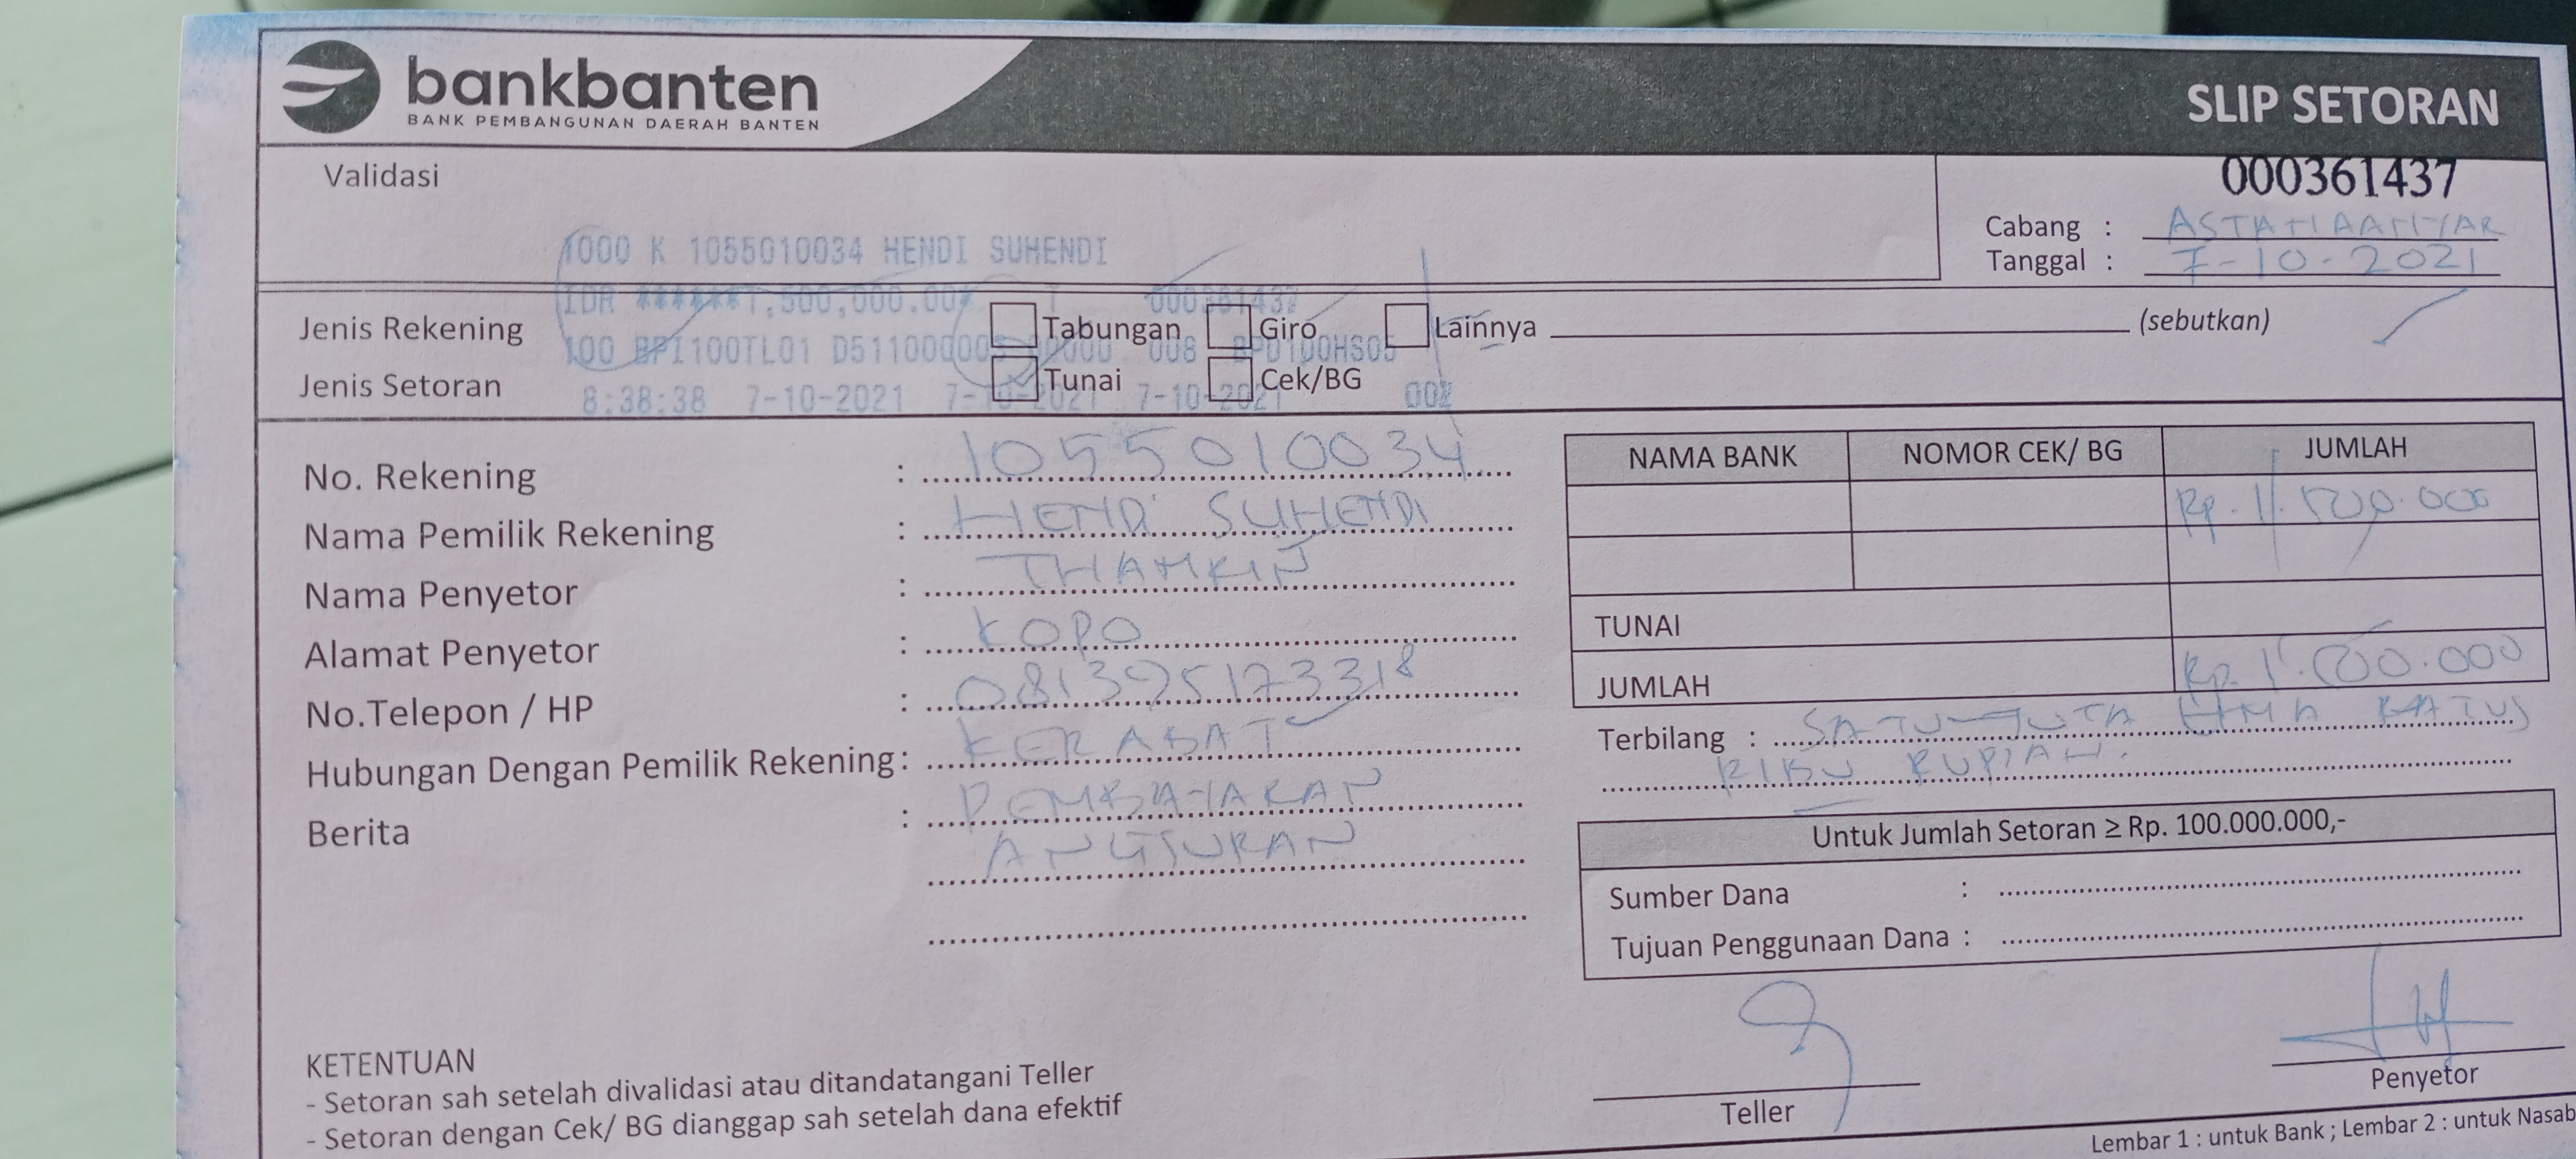 bankbanten
BANK PEMBANGUNAN DAERAH BANTEN
SLIP SETORAN
000361437
Validasi
Cabang : ASTANAANYAR
Tanggal : 7-10-2021
1000 K 1055010034 HENDI SUHENDI
IDR ******1,500,000.00* T 000361437
100 BPI100TL01 008
8:38:38 7-10-2021 7-10-2021 7-10-2021
Jenis Rekening Tabungan Giro Lainnya (sebutkan)
Jenis Setoran Tunai Cek/BG
No. Rekening : 1055010034
Nama Pemilik Rekening : HENDI SUHENDI
Nama Penyetor : THAMKIN
Alamat Penyetor : KOPO
No.Telepon / HP : 081395173318
Hubungan Dengan Pemilik Rekening : KERABAT
Berita : PEMBAYARAN
ANGSURAN
NAMA BANK NOMOR CEK/ BG JUMLAH
Rp. 1.500.000
TUNAI
JUMLAH Rp. 1.500.000
Terbilang : SATU JUTA LIMA RATUS
RIBU RUPIAH.
Untuk Jumlah Setoran ≥ Rp. 100.000.000,-
Sumber Dana :
Tujuan Penggunaan Dana :
KETENTUAN
- Setoran sah setelah divalidasi atau ditandatangani Teller
- Setoran dengan Cek/ BG dianggap sah setelah dana efektif
Teller
Penyetor
Lembar 1 : untuk Bank ; Lembar 2 : untuk Nasab